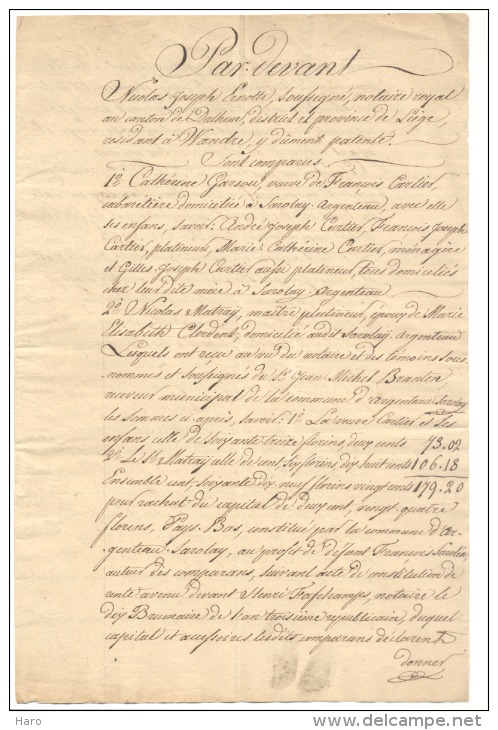 Par-devant
Nicolas Joseph Ernotte, soussigné, notaire royal
au canton de Dalhem, district et province de Liége,
résidant à Wandre, y dûment patenté.
Sont comparus
1º Cathérine veuve de François Cartier,
cabaretière domiciliée à Sarolay-Argenteau, avec elle
ses enfans, savoir: André Joseph Cartier, François Joseph
Cartier, platineurs, Marie Cathérine Cartier, ménagère
et Gilles Joseph Cartier aussi platineur, tous domiciliés
chez leur dite mère à Sarolay-Argenteau
2º Nicolas Matray, maître platineur, époux de Marie
Elisabeth domicilié audit Sarolay-Argenteau
Lesquels ont reçu au vu du notaire et des témoins sous-
nommés et soussignés du Sr Jean Michel
receveur municipal de la commune d'Argenteau-Sarolay
les sommes ci-après, savoir: 1º La veuve Cartier et ses
enfans celle de soixante treize florins deux cents 73.02
2º Le Sr Matray celle de cent, six florins dix huit cents 106.18
Ensemble cent, soixante dix neuf florins vingt cents 179.20
pour rachat du capital de deux cent, vingt quatre
florins, Pays-Bas, constitué par la commune d'Ar-
genteau-Sarolay, au profit de défunt François
auteur des comparans, suivant acte de constitution de
rente avenu devant Henri notaire le
dix Brumaire de l'an troisième républicain, duquel
capital et accessoires lesdits comparans déclarent
donner
Haro
www.delcampe.net